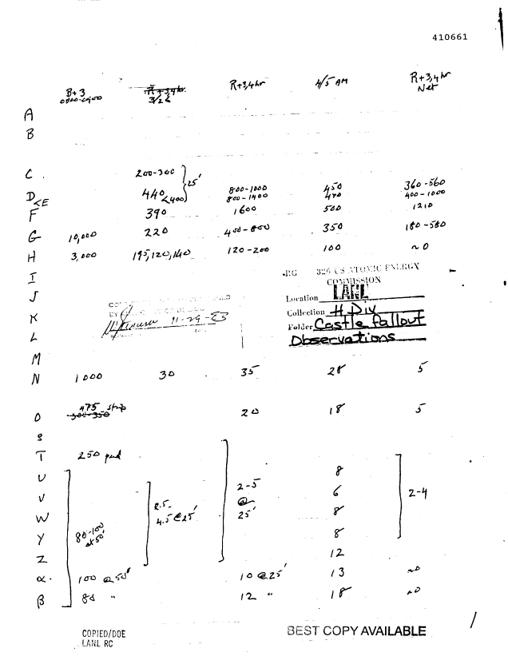 410661
B+3 R+3,4hr 4/5 AM R+3,4hr
3/26 Net
A
B
C. 200-300
25'
D 440 800-1000 450 360-560
<E <400 800-1400 470 400-1000
F 390 1600 500 1210
G 10,000 220 400-800 350 180-580
H 3,000 195,120,140 120-200 100 ~0
I
RG 326 US ATOMIC ENERGY
COMMISSION
J
Location LANL
Collection H Div
K
Folder Castle Fallout
11-29-83
L
Observations
M
N 1000 30 35 28 5
O 475 strip 20 18 5
300-350
S
T 250 pad
U 2-5 8
V 2.5- @ 6 2-4
W 4.5@25' 25' 8
Y 80-100 8
at 50'
Z 12
α. 100 @ 50' 10 @ 25' 13 ~0
β 80 " 12 " 18 ~0
COPIED/DOE
LANL RC
BEST COPY AVAILABLE
1